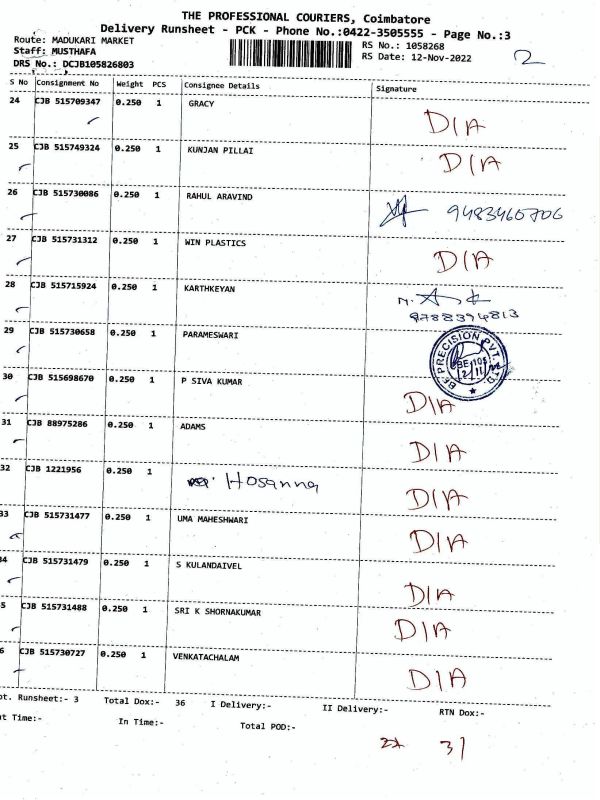 THE PROFESSIONAL COURIERS, Coimbatore
Delivery Runsheet - PCK - Phone No.:0422-3505555 - Page No.:3
Route: MADUKARI MARKET
Staff: MUSTHAFA
DRS No.: DCJB105826803
RS No.: 1058268
RS Date: 12-Nov-2022
2
S No Consignment No Weight PCS Consignee Details Signature
24 CJB 515709347 0.250 1 GRACY D/A
25 CJB 515749324 0.250 1 KUNJAN PILLAI D/A
26 CJB 515730086 0.250 1 RAHUL ARAVIND 9483460706
27 CJB 515731312 0.250 1 WIN PLASTICS D/A
28 CJB 515715924 0.250 1 KARTHKEYAN
9788394813
29 CJB 515730658 0.250 1 PARAMESWARI BE PRECISION PVT. LTD.
30 CJB 515698670 0.250 1 P SIVA KUMAR D/A
31 CJB 88975286 0.250 1 ADAMS D/A
32 CJB 1221956 0.250 1 Hosanna D/A
33 CJB 515731477 0.250 1 UMA MAHESHWARI D/A
34 CJB 515731479 0.250 1 S KULANDAIVEL D/A
5 CJB 515731488 0.250 1 SRI K SHORNAKUMAR D/A
6 CJB 515730727 0.250 1 VENKATACHALAM D/A
pt. Runsheet:- 3 Total Dox:- 36 I Delivery:- II Delivery:- RTN Dox:-
ut Time:- In Time:- Total POD:-
31